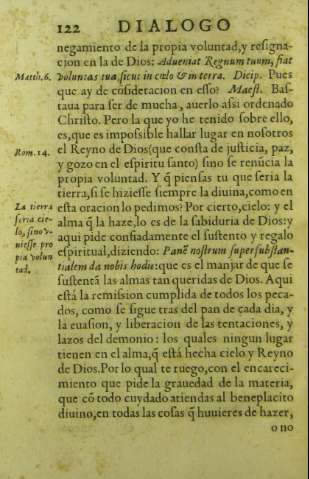 122 DIALOGO
negamiento de la propia voluntad, y resigna-
cion en la de Dios: Adueniat Regnum tuum, fiat
Matth. 6. voluntas tua sicut in cœlo & in terra. Dicip. Pues
que ay de cõsideracion en esso? Maest. Bas-
taua para ser de mucha, auerlo assi ordenado
Christo. Pero la que yo he tenido sobre ello,
es, que es impossible hallar lugar en nosotros
Rom. 14. el Reyno de Dios (que consta de justicia, paz,
y gozo en el espiritu santo) sino se renũcia la
propia voluntad. Y q̃ piensas tu que seria la
tierra, si se hiziesse siempre la diuina, como en
La tierra
seria cie-
lo, sino v-
uiesse pro
pia volun
tad.
esta oracion lo pedimos? Por cierto, cielo: y el
alma q̃ la haze, lo es de la sabiduria de Dios: y
aqui pide confiadamente el sustento y regalo
espiritual, diziendo: Panẽ nostrum supersubstan-
tialem da nobis hodie: que es el manjar de que se
sustentã las almas tan queridas de Dios. Aqui
està la remission cumplida de todos los peca-
dos, como se sigue tras del pan de cada dia, y
la euasion, y liberacion de las tentaciones, y
lazos del demonio: los quales ningun lugar
tienen en el alma, q̃ està hecha cielo y Reyno
de Dios. Por lo qual te ruego, con el encareci-
miento que pide la grauedad de la materia,
que cõ todo cuydado atiendas al beneplacito
diuino, en todas las cosas q̃ huuieres de hazer,
o no